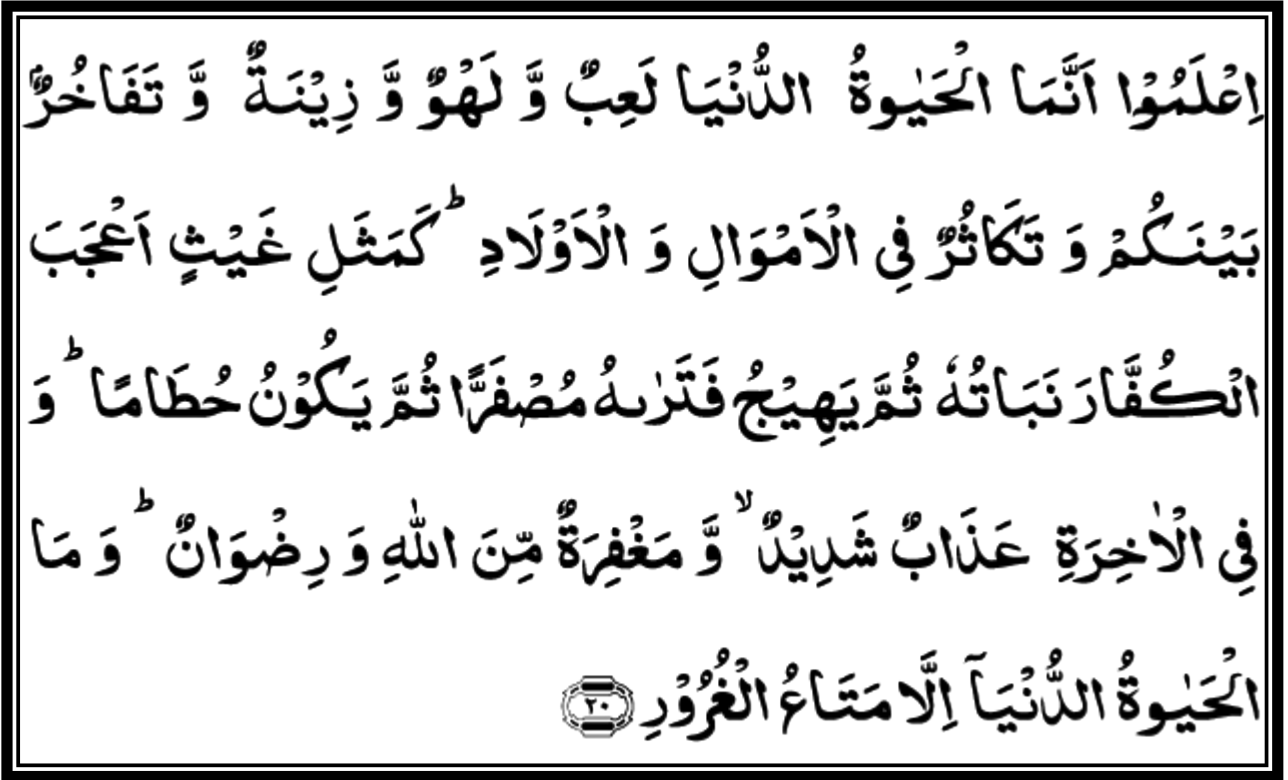 اِعْلَمُوْۤا اَنَّمَا الْحَيٰوةُ الدُّنْيَا لَعِبٌ وَّ لَهْوٌ وَّ زِيْنَةٌ وَّ تَفَاخُرٌۢ
بَيْنَكُمْ وَ تَكَاثُرٌ فِی الْاَمْوَالِ وَ الْاَوْلَادِ ؕ كَمَثَلِ غَيْثٍ اَعْجَبَ
الْكُفَّارَ نَبَاتُهٗ ثُمَّ يَهِيْجُ فَتَرٰىهُ مُصْفَرًّا ثُمَّ يَكُوْنُ حُطَامًا ؕ وَ
فِی الْاٰخِرَةِ عَذَابٌ شَدِيْدٌ ۙ وَّ مَغْفِرَةٌ مِّنَ اللّٰهِ وَ رِضْوَانٌ ؕ وَ مَا
الْحَيٰوةُ الدُّنْيَاۤ اِلَّا مَتَاعُ الْغُرُوْرِ ۲۰